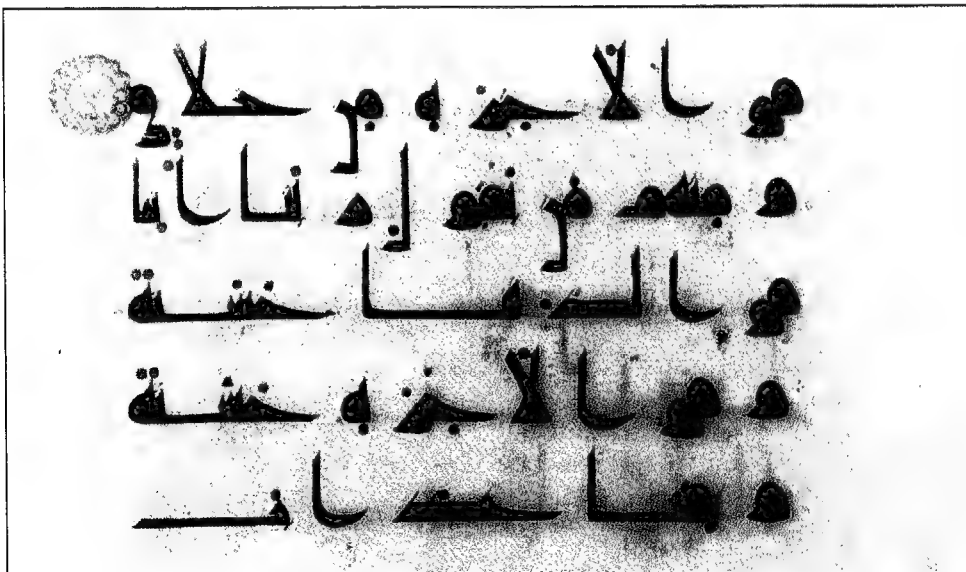 فى الاخرة من خلاق
ومنهم من يقول ربنا اتنا
فى الدنيا حسنة
وفى الاخرة حسنة
وقنا عذاب